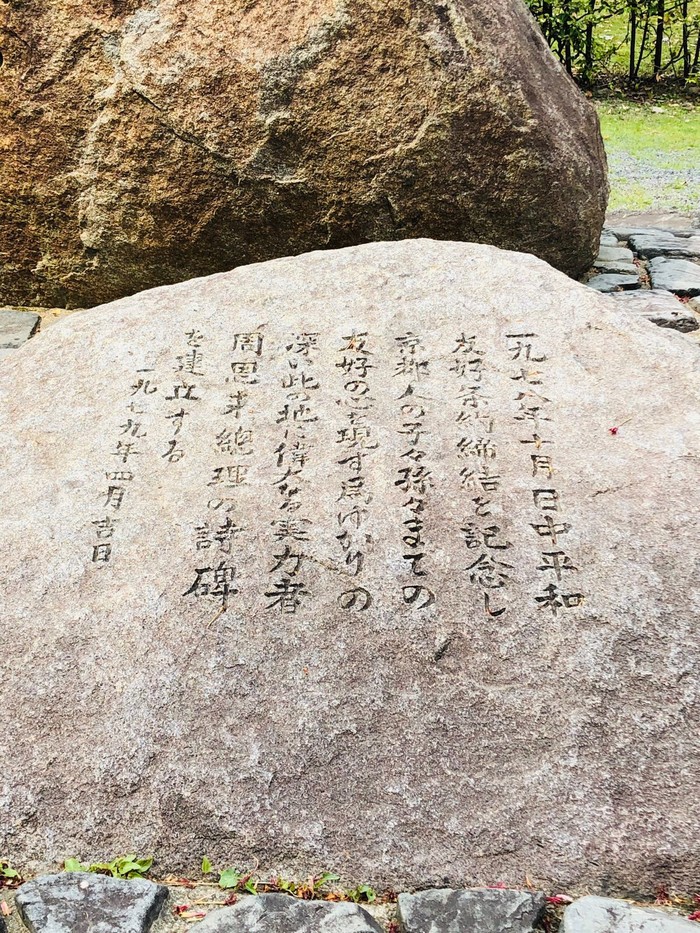 一九七八年十月日中平和
友好条約締結を記念し
京都人の子々孫々まての
友好の心を現す為ゆかりの
深い此の地に偉大なる実力者
周恩来總理の詩碑
を建立する
一九七九年四月吉日